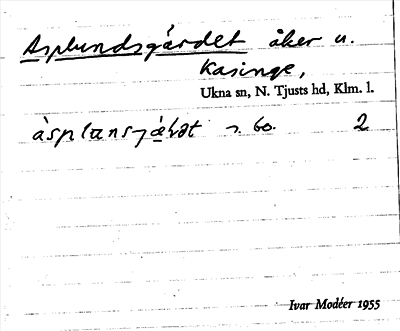 Asplundsgärdet åker u.
Kasinge,
Ukna sn, N. Tjusts hd, Klm. l.
2
Ivar Modéer 1955